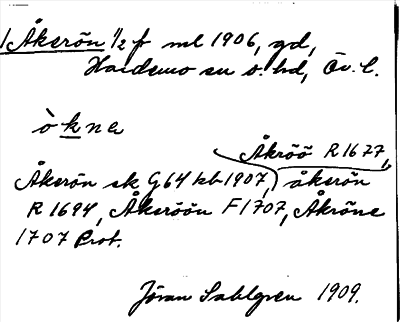 1 Åkerön 1/2 f ml 1906, gd,
Hardemo sn o. hd, Ör. l.
ò k n a
Åkröö R 1677,
Åkerön sk G 64 kb 1907, åkerön
R 1694, Åkeröön F 1707, Åkröne
1707 Prot.
Jöran Sahlgren 1909.